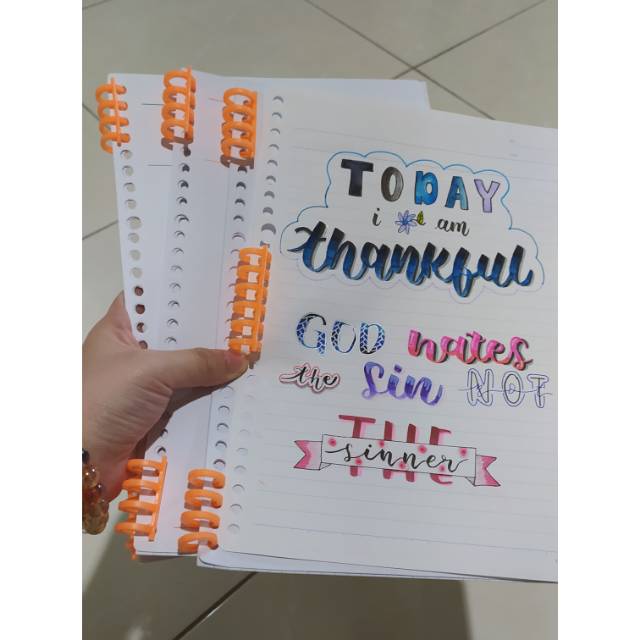 TODAY
i am
thankful
GOD hates
the Sin NOT
THE
sinner